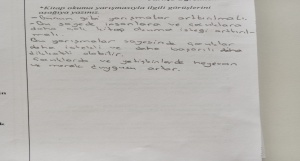 *Kitap okuma yarışmasıyla ilgili görüşlerini
aşağıya yazınız.
-Bunun gibi yarışmalar arttırılmalı.
-Bu sayede insanlara ve çocuklara
daha çok kitap okuma isteği arttırıl-
malı.
Bu yarışmalar sayesinde çocuklar
daha istekli ve daha başarılı daha
dikkatli olabilir.
Çocuklarda ve yetişkinlerde heyecan
ve merak duygusu artar.